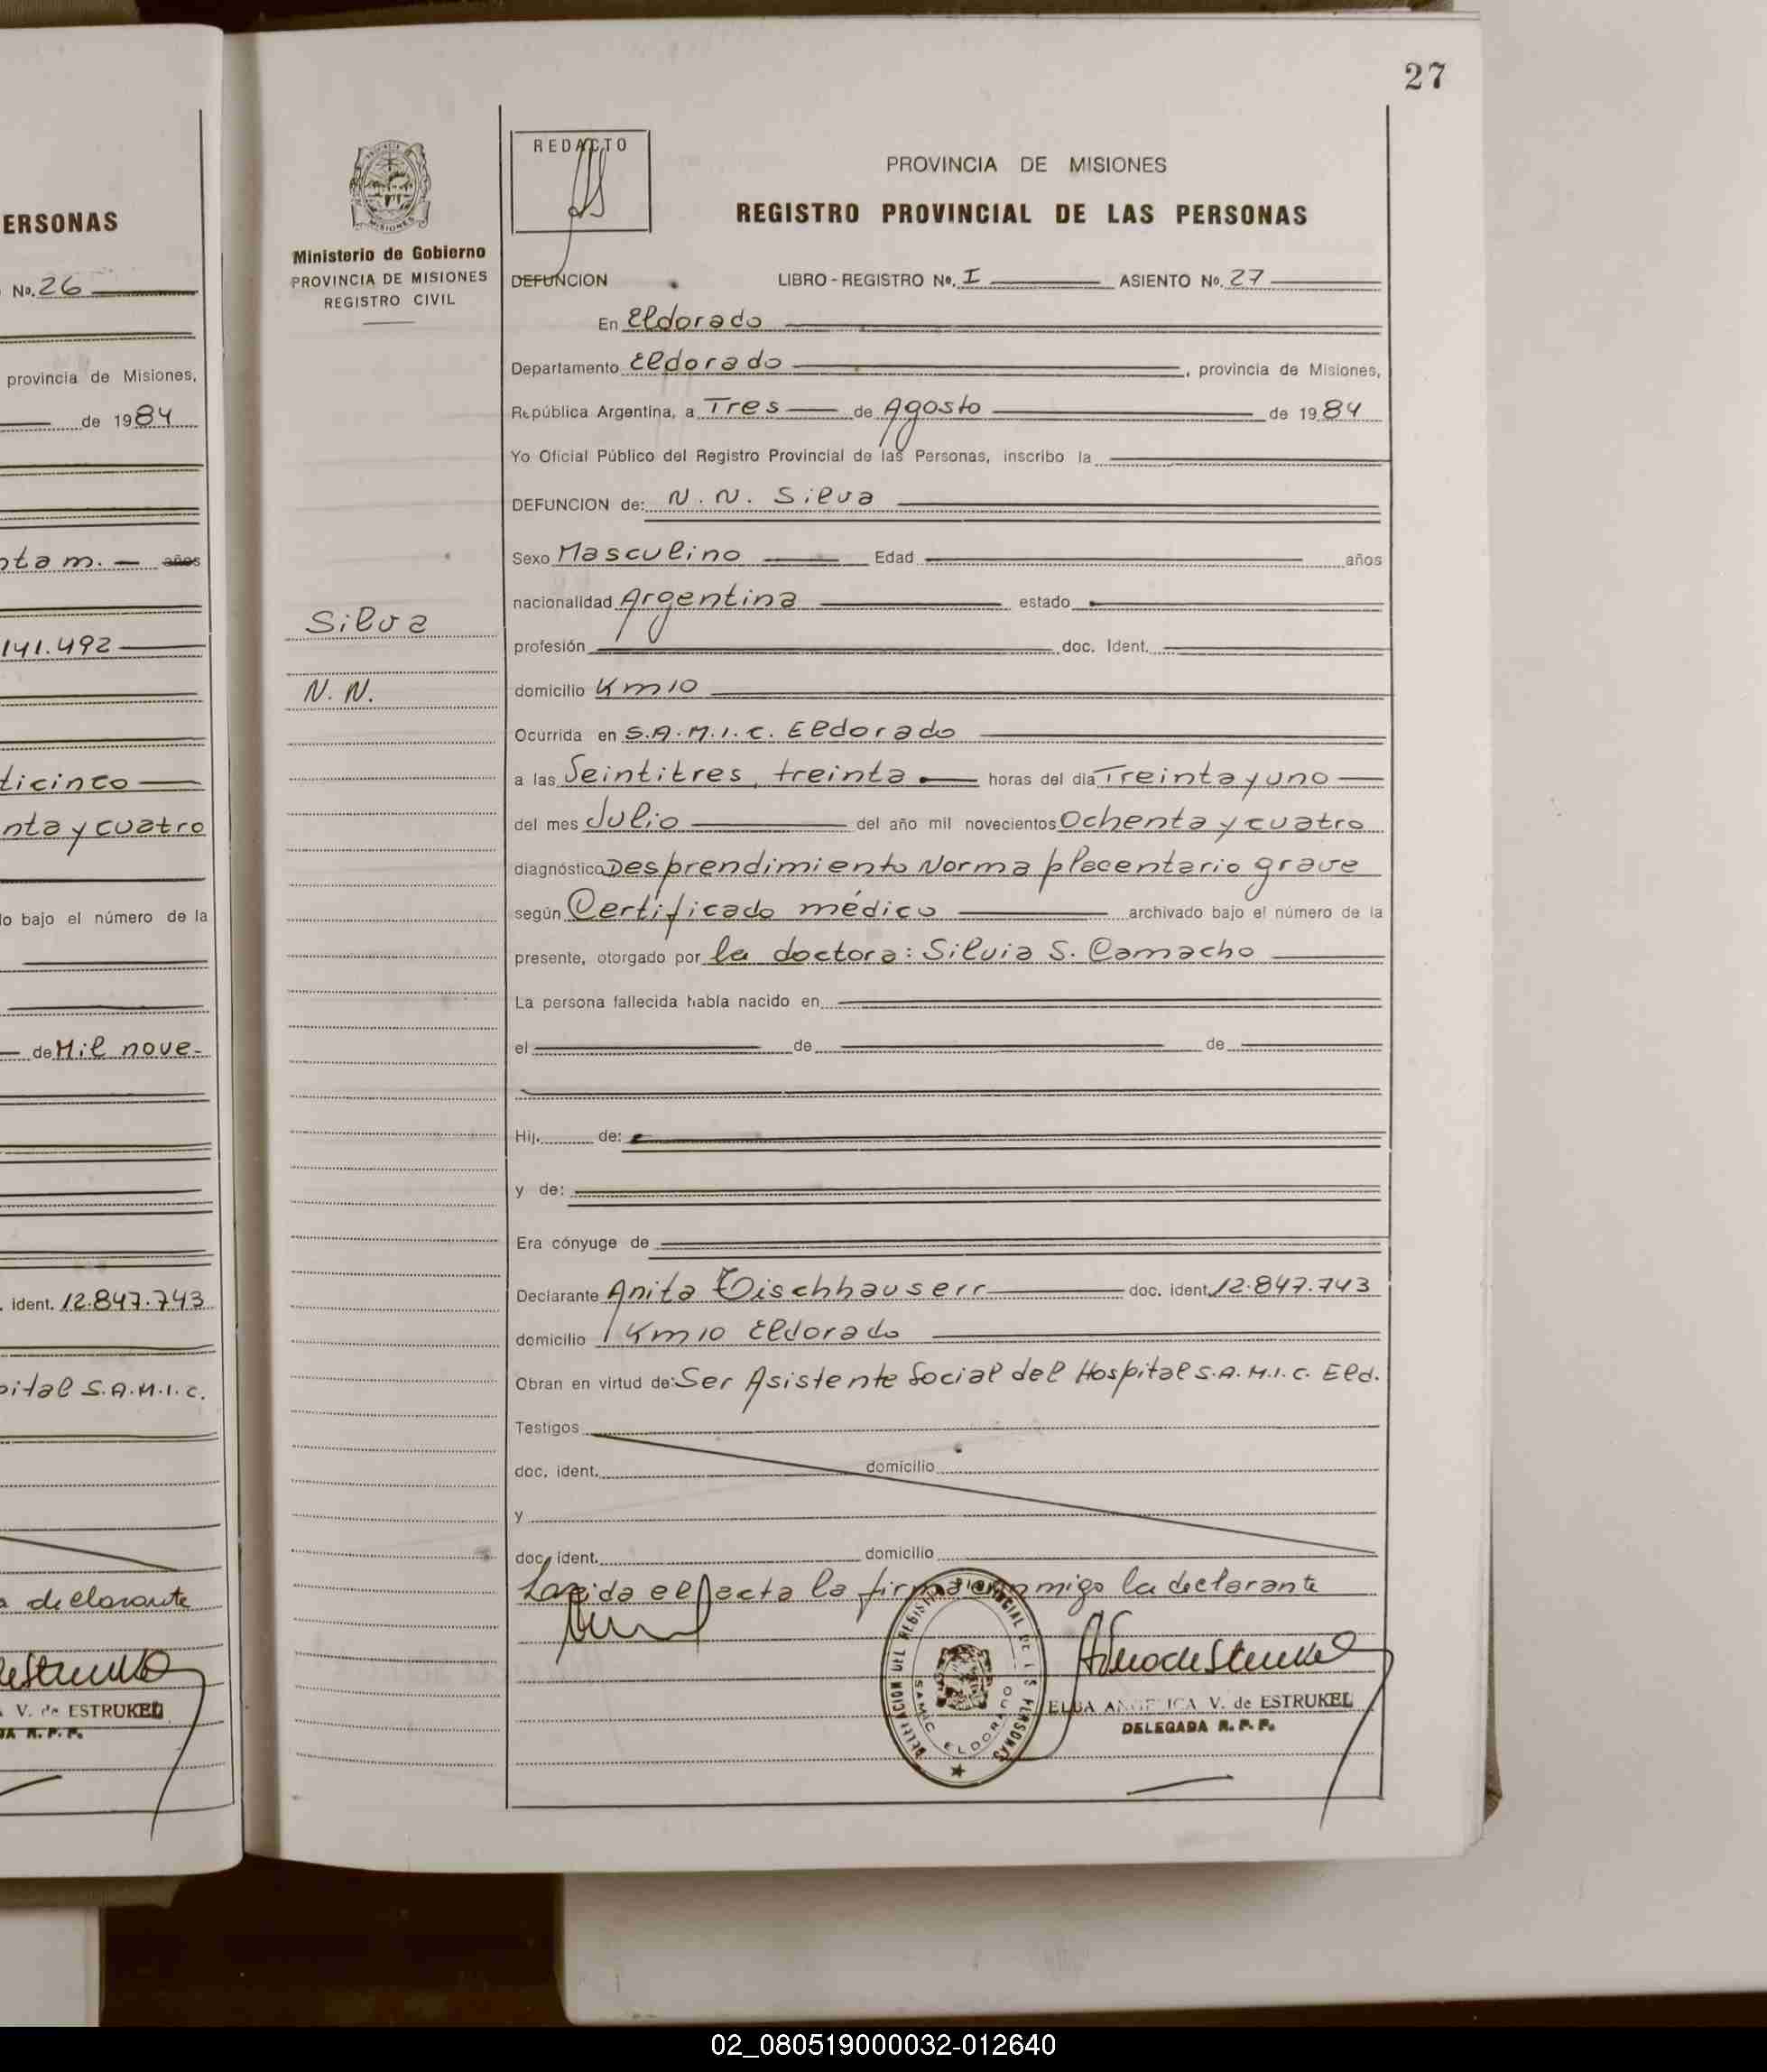 27
ERSONAS
No. 26
provincia de Misiones,
de 1984
nta m. años
141.492
ticinco
nta y cuatro
o bajo el número de la
de Mil nove-
ident. 12.847.743
pital S.A.M.I.C.
a declarante
V. de ESTRUKEL
DA R. P. P.
Ministerio de Gobierno
PROVINCIA DE MISIONES
REGISTRO CIVIL
Silva
N. N.
REDACTO
PROVINCIA DE MISIONES
REGISTRO PROVINCIAL DE LAS PERSONAS
DEFUNCION LIBRO - REGISTRO No. I ASIENTO No. 27
En Eldorado
Departamento Eldorado, provincia de Misiones,
República Argentina, a Tres de Agosto de 1984
Yo Oficial Público del Registro Provincial de las Personas, inscribo la
DEFUNCION de: N. N. Silva
Sexo Masculino Edad años
nacionalidad Argentina estado
profesión doc. Ident.
domicilio Km 10
Ocurrida en S.A.M.I.C. Eldorado
a las Seintitres, treinta horas del día Treinta y uno
del mes Julio del año mil novecientos Ochenta y cuatro
diagnóstico Desprendimiento Norma placentario grave
según Certificado médico archivado bajo el número de la
presente, otorgado por la doctora: Silvia S. Camacho
La persona fallecida había nacido en
el de de
Hij. de:
y de:
Era cónyuge de
Declarante Anita doc. ident. 12.847.743
domicilio Km 10 Eldorado
Obran en virtud de: Ser Asistente Social del Hospital S.A.M.I.C. Eld.
Testigos
doc. ident. domicilio
y
doc. ident. domicilio
Leida el acta la firma conmigo la declarante
DELEGACION DEL REGISTRO PROVINCIAL DE LAS PERSONAS
SAMIC ELDORADO
ELBA ANGELICA V. de ESTRUKEL
DELEGADA R. P. P.
02_080519000032-012640